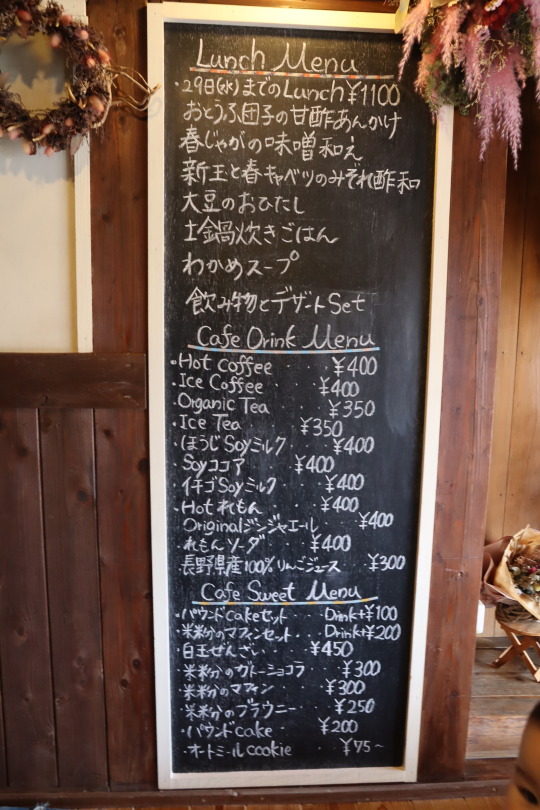 Lunch Menu
・29日(水)までのLunch¥1100
おとうふ団子の甘酢あんかけ
春じゃがの味噌和え
新玉と春キャベツのみぞれ酢和
大豆のおひたし
土鍋炊きごはん
わかめスープ
飲み物とデザートSet
Cafe Drink Menu
・Hot Coffee ・・・ ¥400
・Ice Coffee ・・・ ¥400
Organic Tea ¥350
・Ice Tea ¥350
・ほうじSoyミルク ・・ ¥400
・Soyココア ・・ ¥400
・イチゴSoyミルク ・・ ¥400
・Hotれもん ・・ ¥400
Originalジンジャエール ・・ ¥400
・れもんソーダ ・・ ¥400
長野県産100%りんごジュース ・・ ¥300
Cafe Sweet Menu
・パウンドcakeセット ・・・ Drink+¥100
・米粉のマフィンセット ・・ Drink+¥200
・白玉ぜんざい ・・ ¥450
米粉のガトーショコラ ・・ ¥300
・米粉のマフィン ・・ ¥300
・米粉のブラウニー ・・ ¥250
・パウンドcake ・・ ¥200
・オートミールcookie ・・ ¥75~